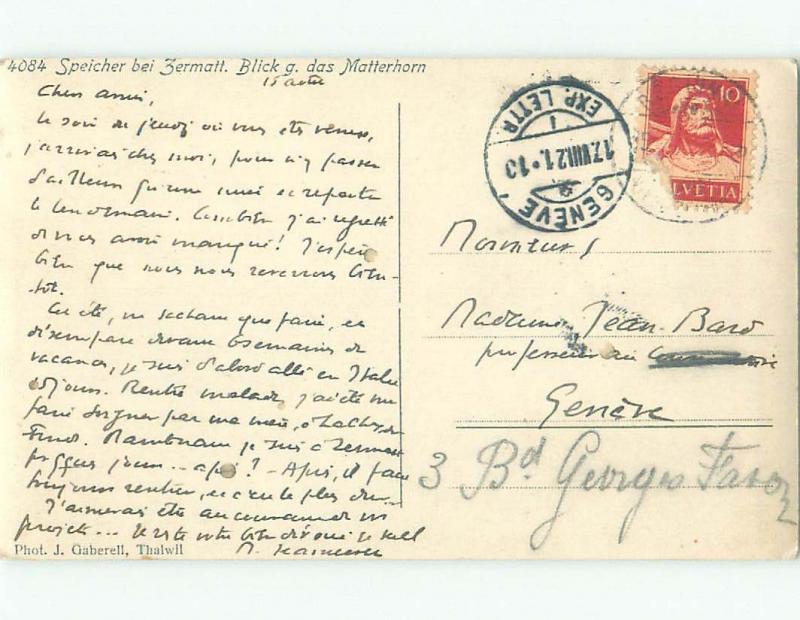 4084 Speicher bei Zermatt. Blick g. das Matterhorn
15 août
Cher ami,
le soir de jeudi où vous êtes venus,
j'arrivais chez moi, pour n'y passer
d'ailleurs qu'une nuit et repartir
le lendemain. Combien j'ai regretté
de vous avoir manqué! J'espère
bien que nous nous reverrons bien-
tôt.
Cet été, ne sachant que faire, et
désemparé devant 6 semaines de
vacances, je suis d'abord allé en Italie
15 jours. Rentré malade, j'ai été me
faire soigner par ma mère, à La Chx de
Fonds. Maintenant je suis à Zermatt
pr qques jours... après? - Après, il faut
toujours rentrer, et c'est le plus dur.
J'aimerais être au courant de vos
projets... Je reste votre bien dévoué
Phot. J. Gaberell, Thalwil
EXP. LETTR.
1
17.VIII.21.10
GENÈVE
10
HELVETIA
Monsieur
Madame Jean Bard
professeur au
Genève
3 Bd Georges Favon